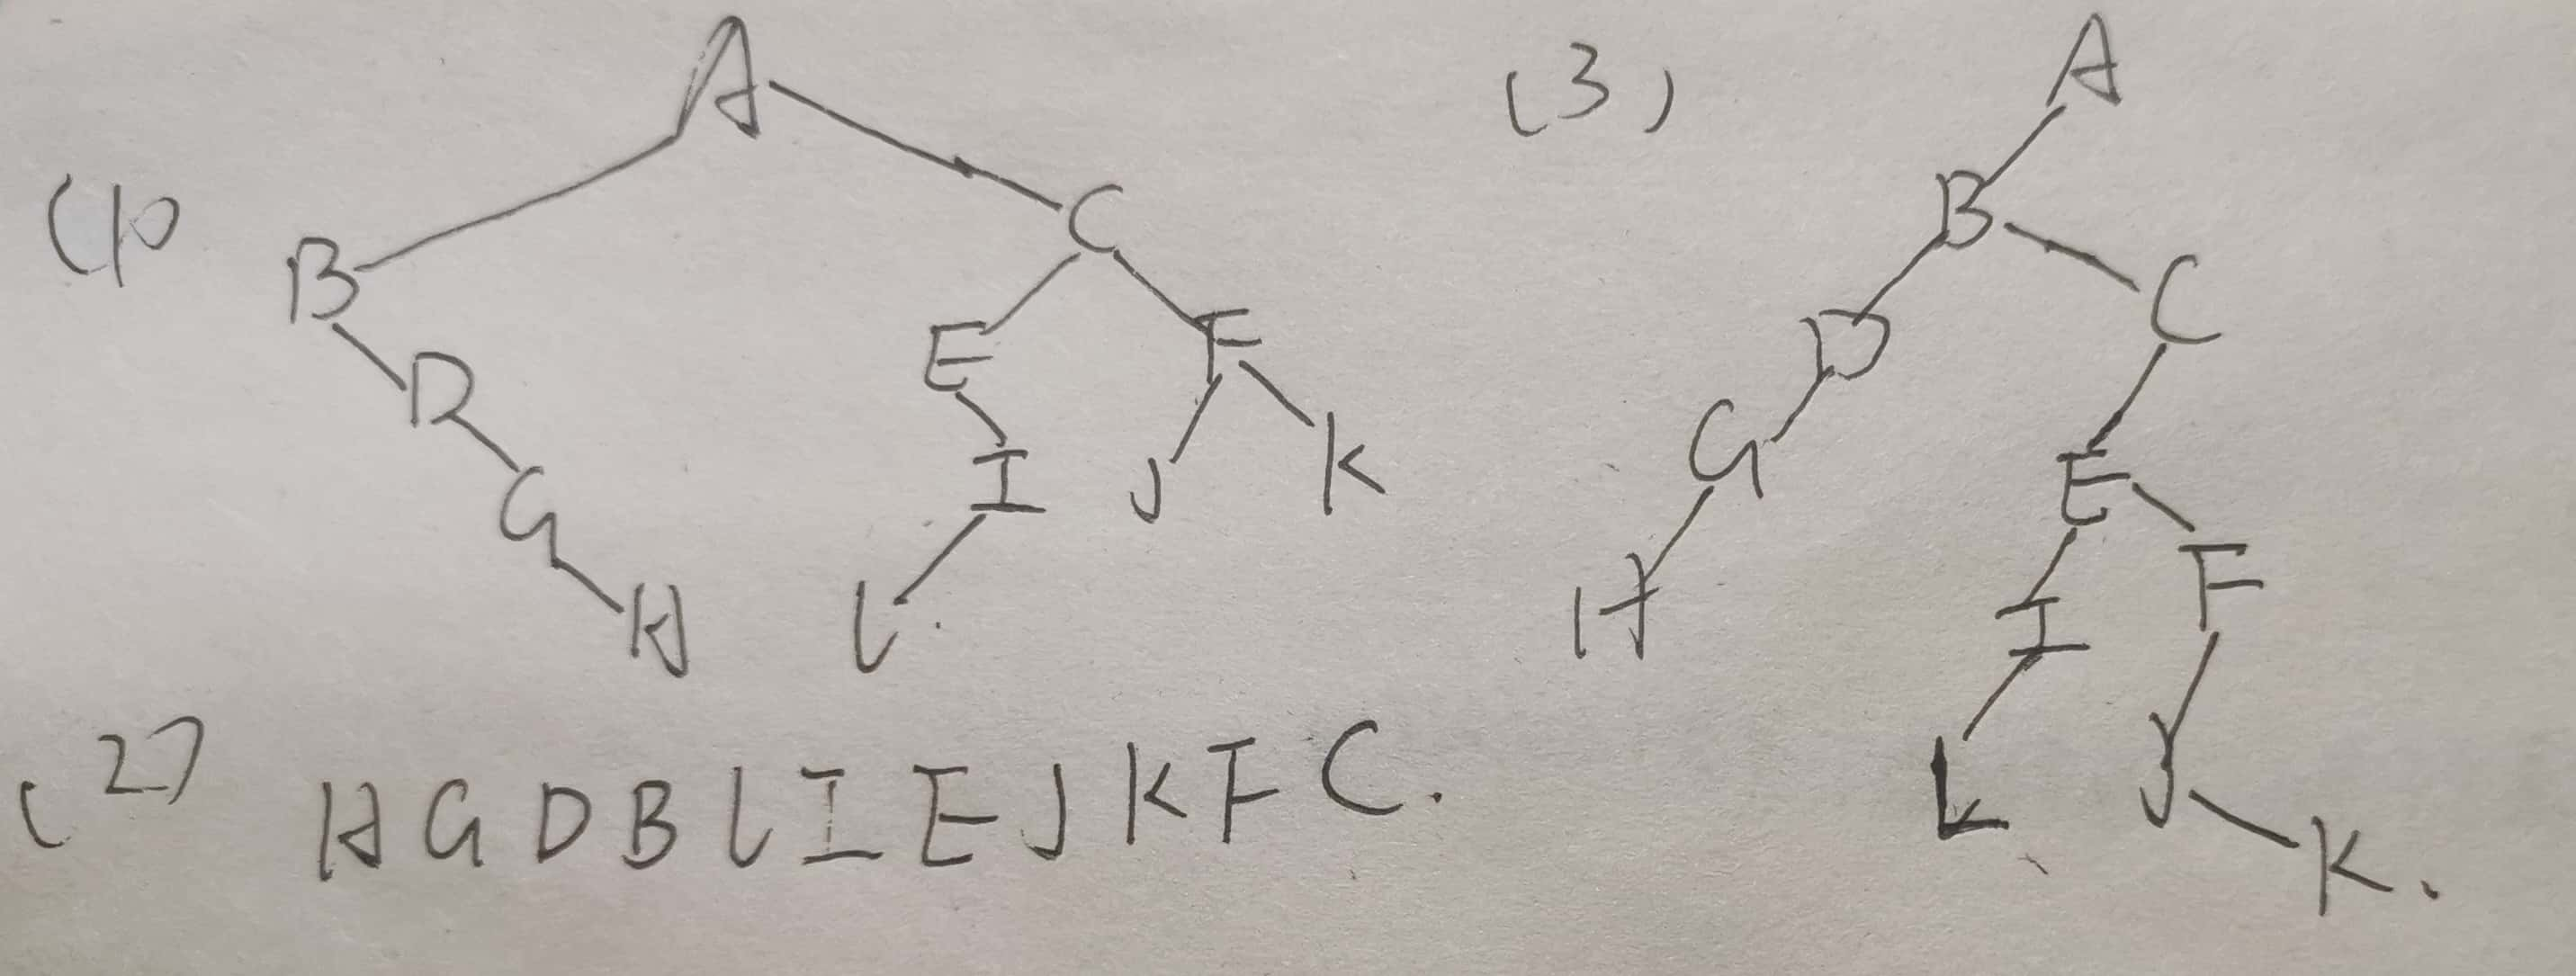 (1)
A
B C
D E F
G I J K
H L
(2) H G D B L I E J K F C.
(3)
A
B
C
D
G E
H I F
L J
K.